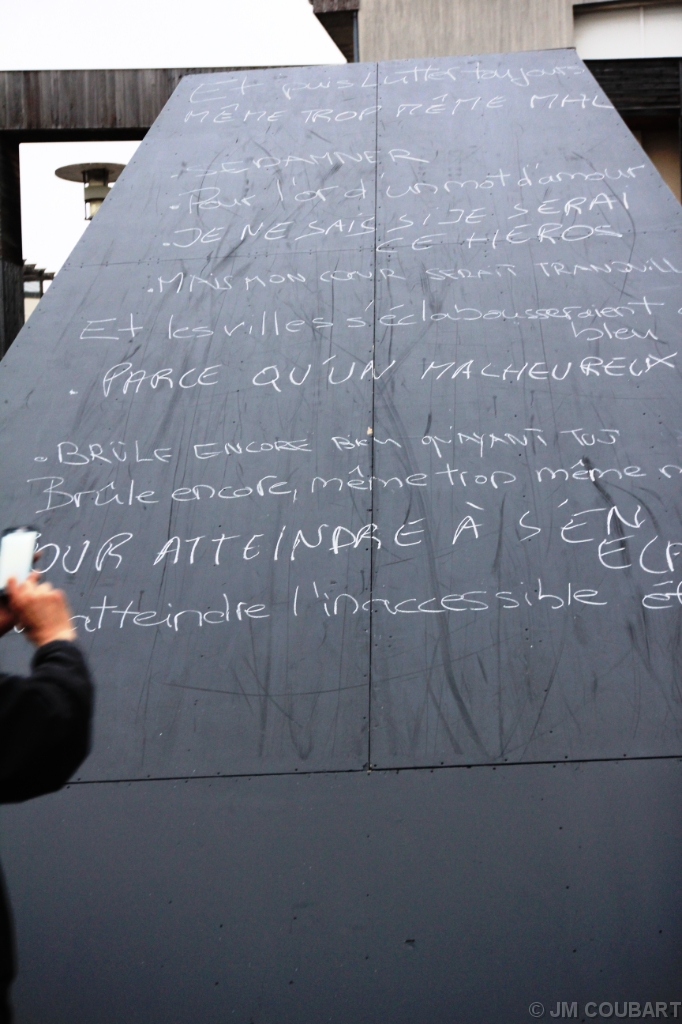 Et puis lutter toujours
MÊME TROP MÊME MAL
. SE DAMNER
. Pour l'or d'un mot d'amour
. JE NE SAIS SI JE SERAI
CE HÉROS
. MAIS MON CŒUR SERAIT TRANQUILL
Et les villes s'éclabousseraient
bleu
. PARCE QU'UN MALHEUREUX
. BRÛLE ENCORE BIEN QU'AYANT TOUT
Brûle encore, même trop même m
OUR ATTEINDRE À S'EN
ÉCA
atteindre l'inaccessible ét
© JM COUBART